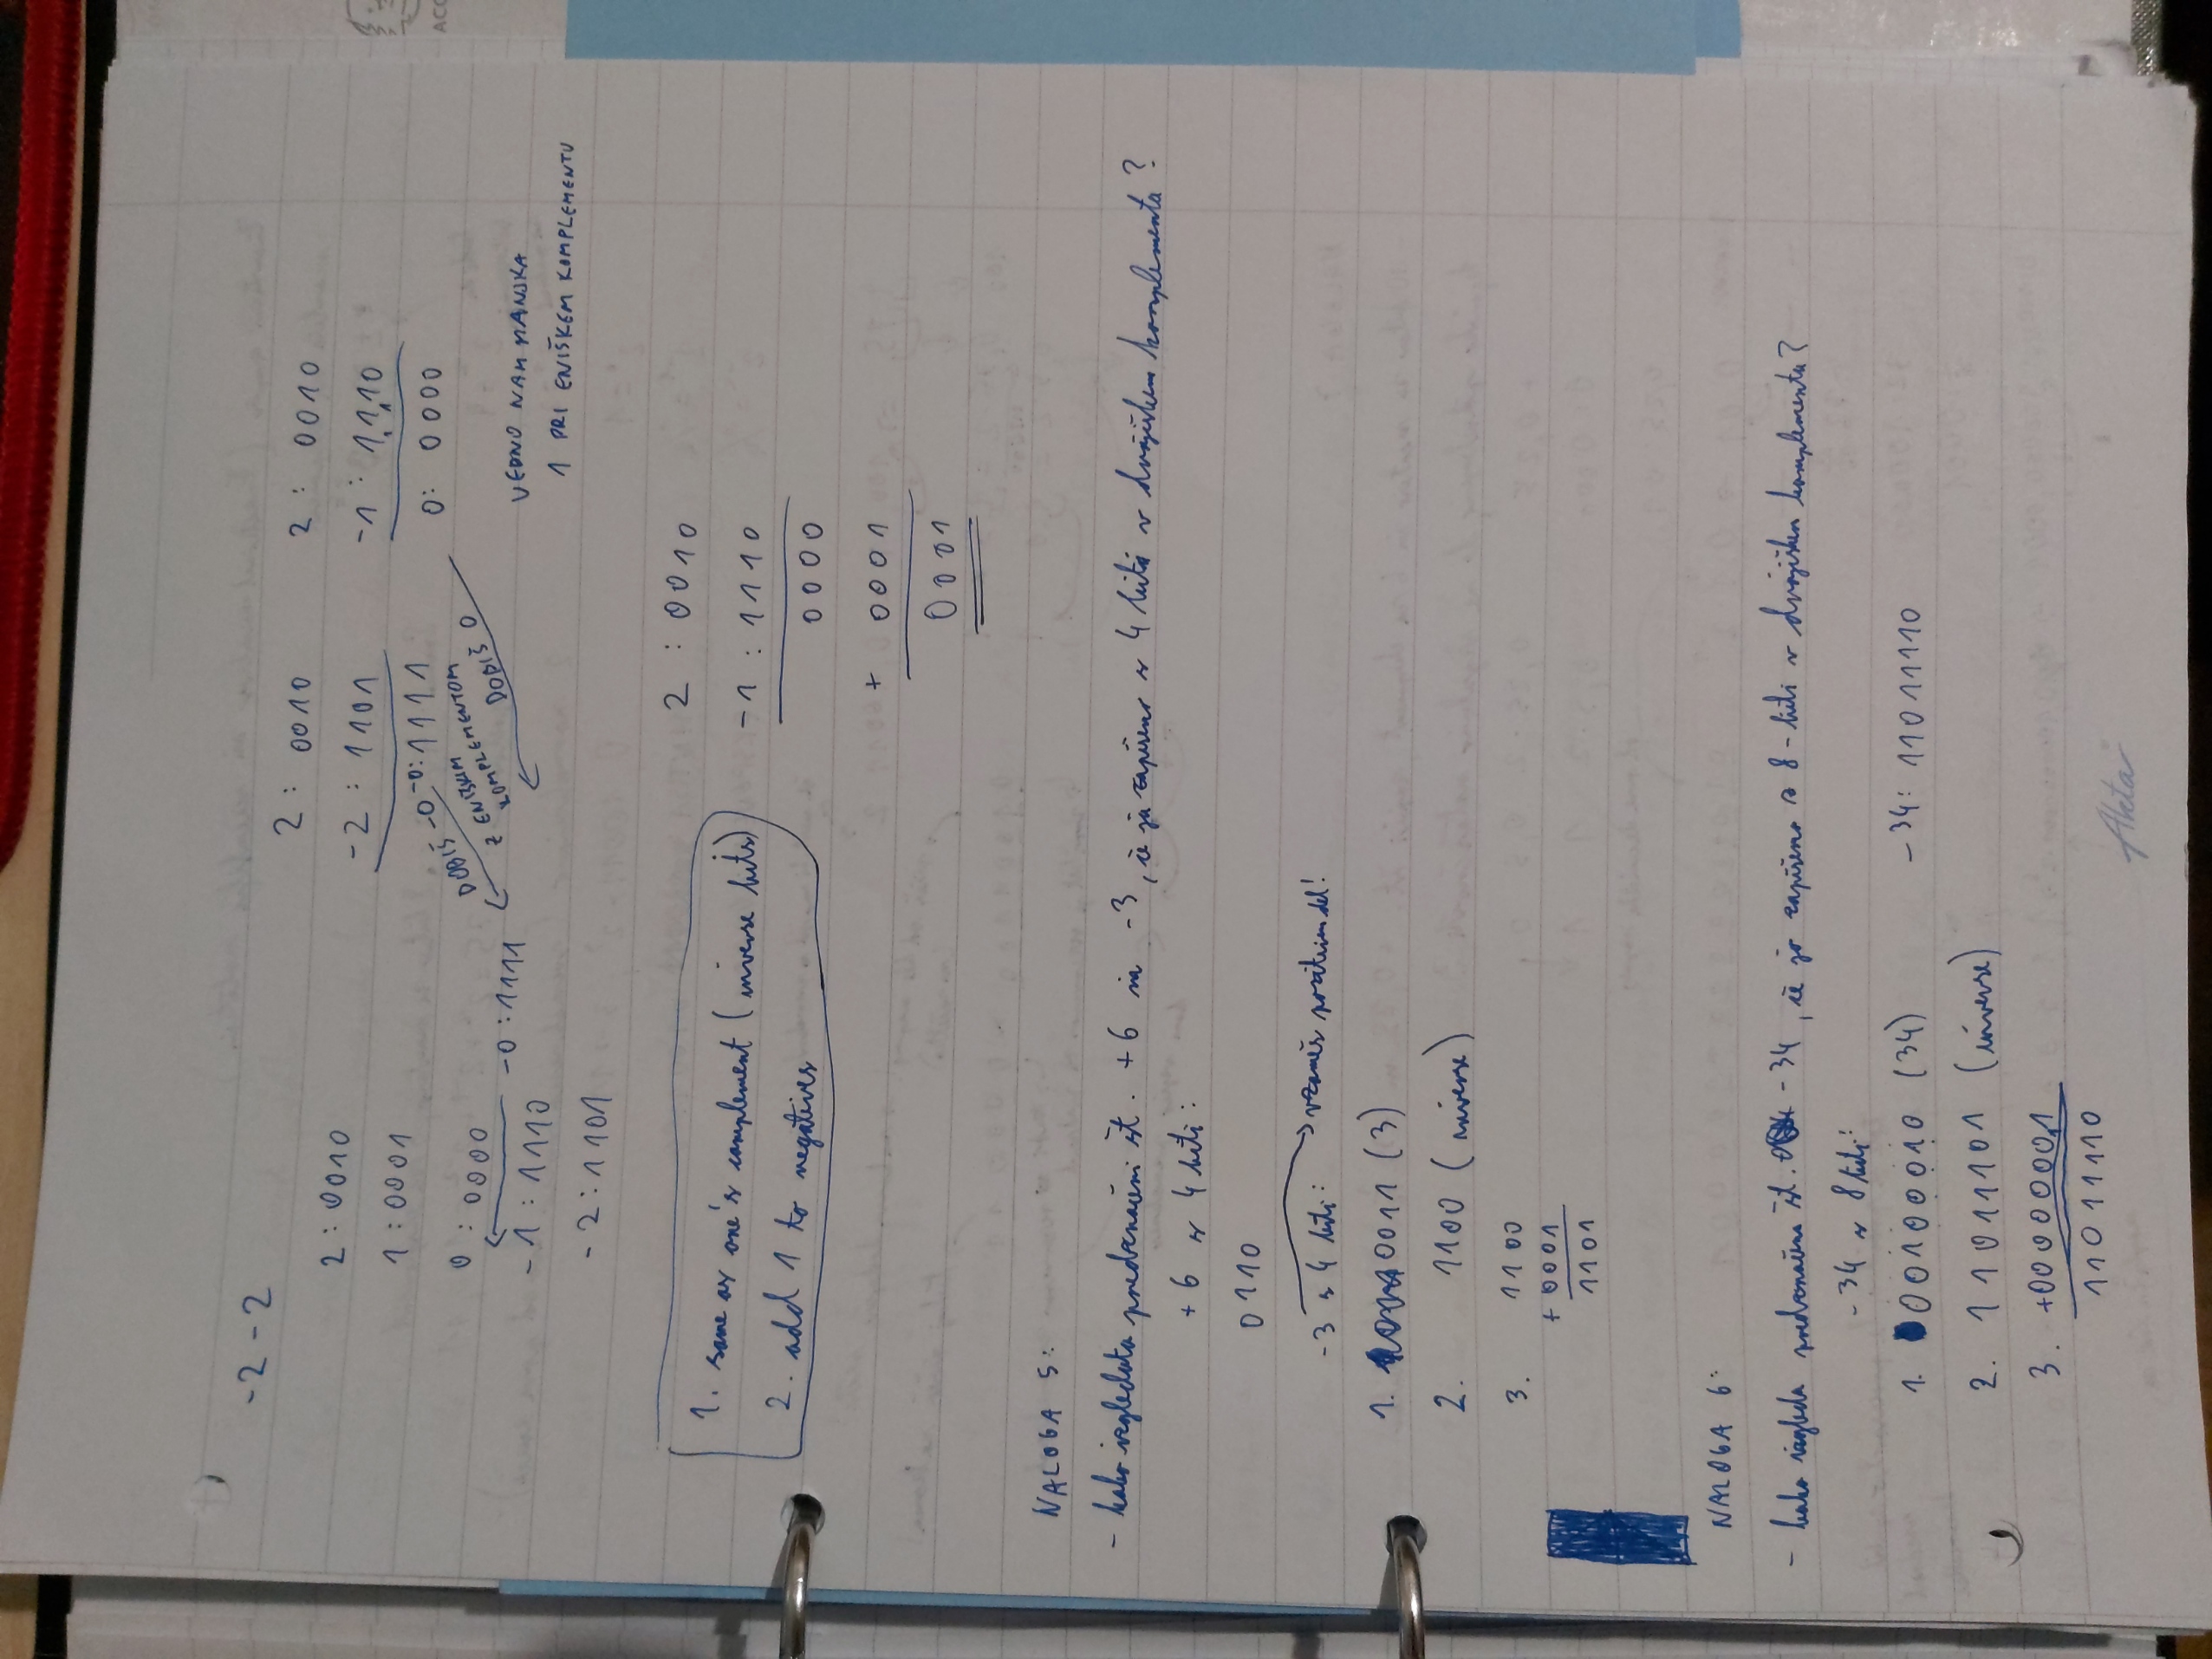 -2 -2
2 : 0010
1 : 0001
0 : 0000
-0 : 1111
-1 : 1110
-2 : 1101
2 : 0010
-2 : 1101
-0: 1111
DOBIŠ -0
Z ENIŠKIM
KOMPLEMENTOM
2 : 0010
-1 : 1110
0: 0000
DOBIŠ 0
VEDNO NAM MANJKA
1 PRI ENIŠKEM KOMPLEMENTU
1. same as one's complement (inverse bits)
2. add 1 to negatives
2 : 0010
-1 : 1110
0000
+ 0001
0001
NALOGA 5:
- kako izgledata predznačeni št. +6 in -3, če jo zapišemo s 4 biti v dvojiškem komplementu?
+6 s 4 biti:
0110
-3 s 4 biti: vzameš pozitiven del!
1. 0011 (3)
2. 1100 (inverse)
3. 1100
+ 0001
1101
NALOGA 6:
- kako izgleda predznačeno št. -34, če jo zapišemo s 8-biti v dvojiškem komplementu?
-34 s 8 biti:
1. 00100010 (34) -34: 11011110
2. 11011101 (inverse)
3. +00000001
11011110
Akta